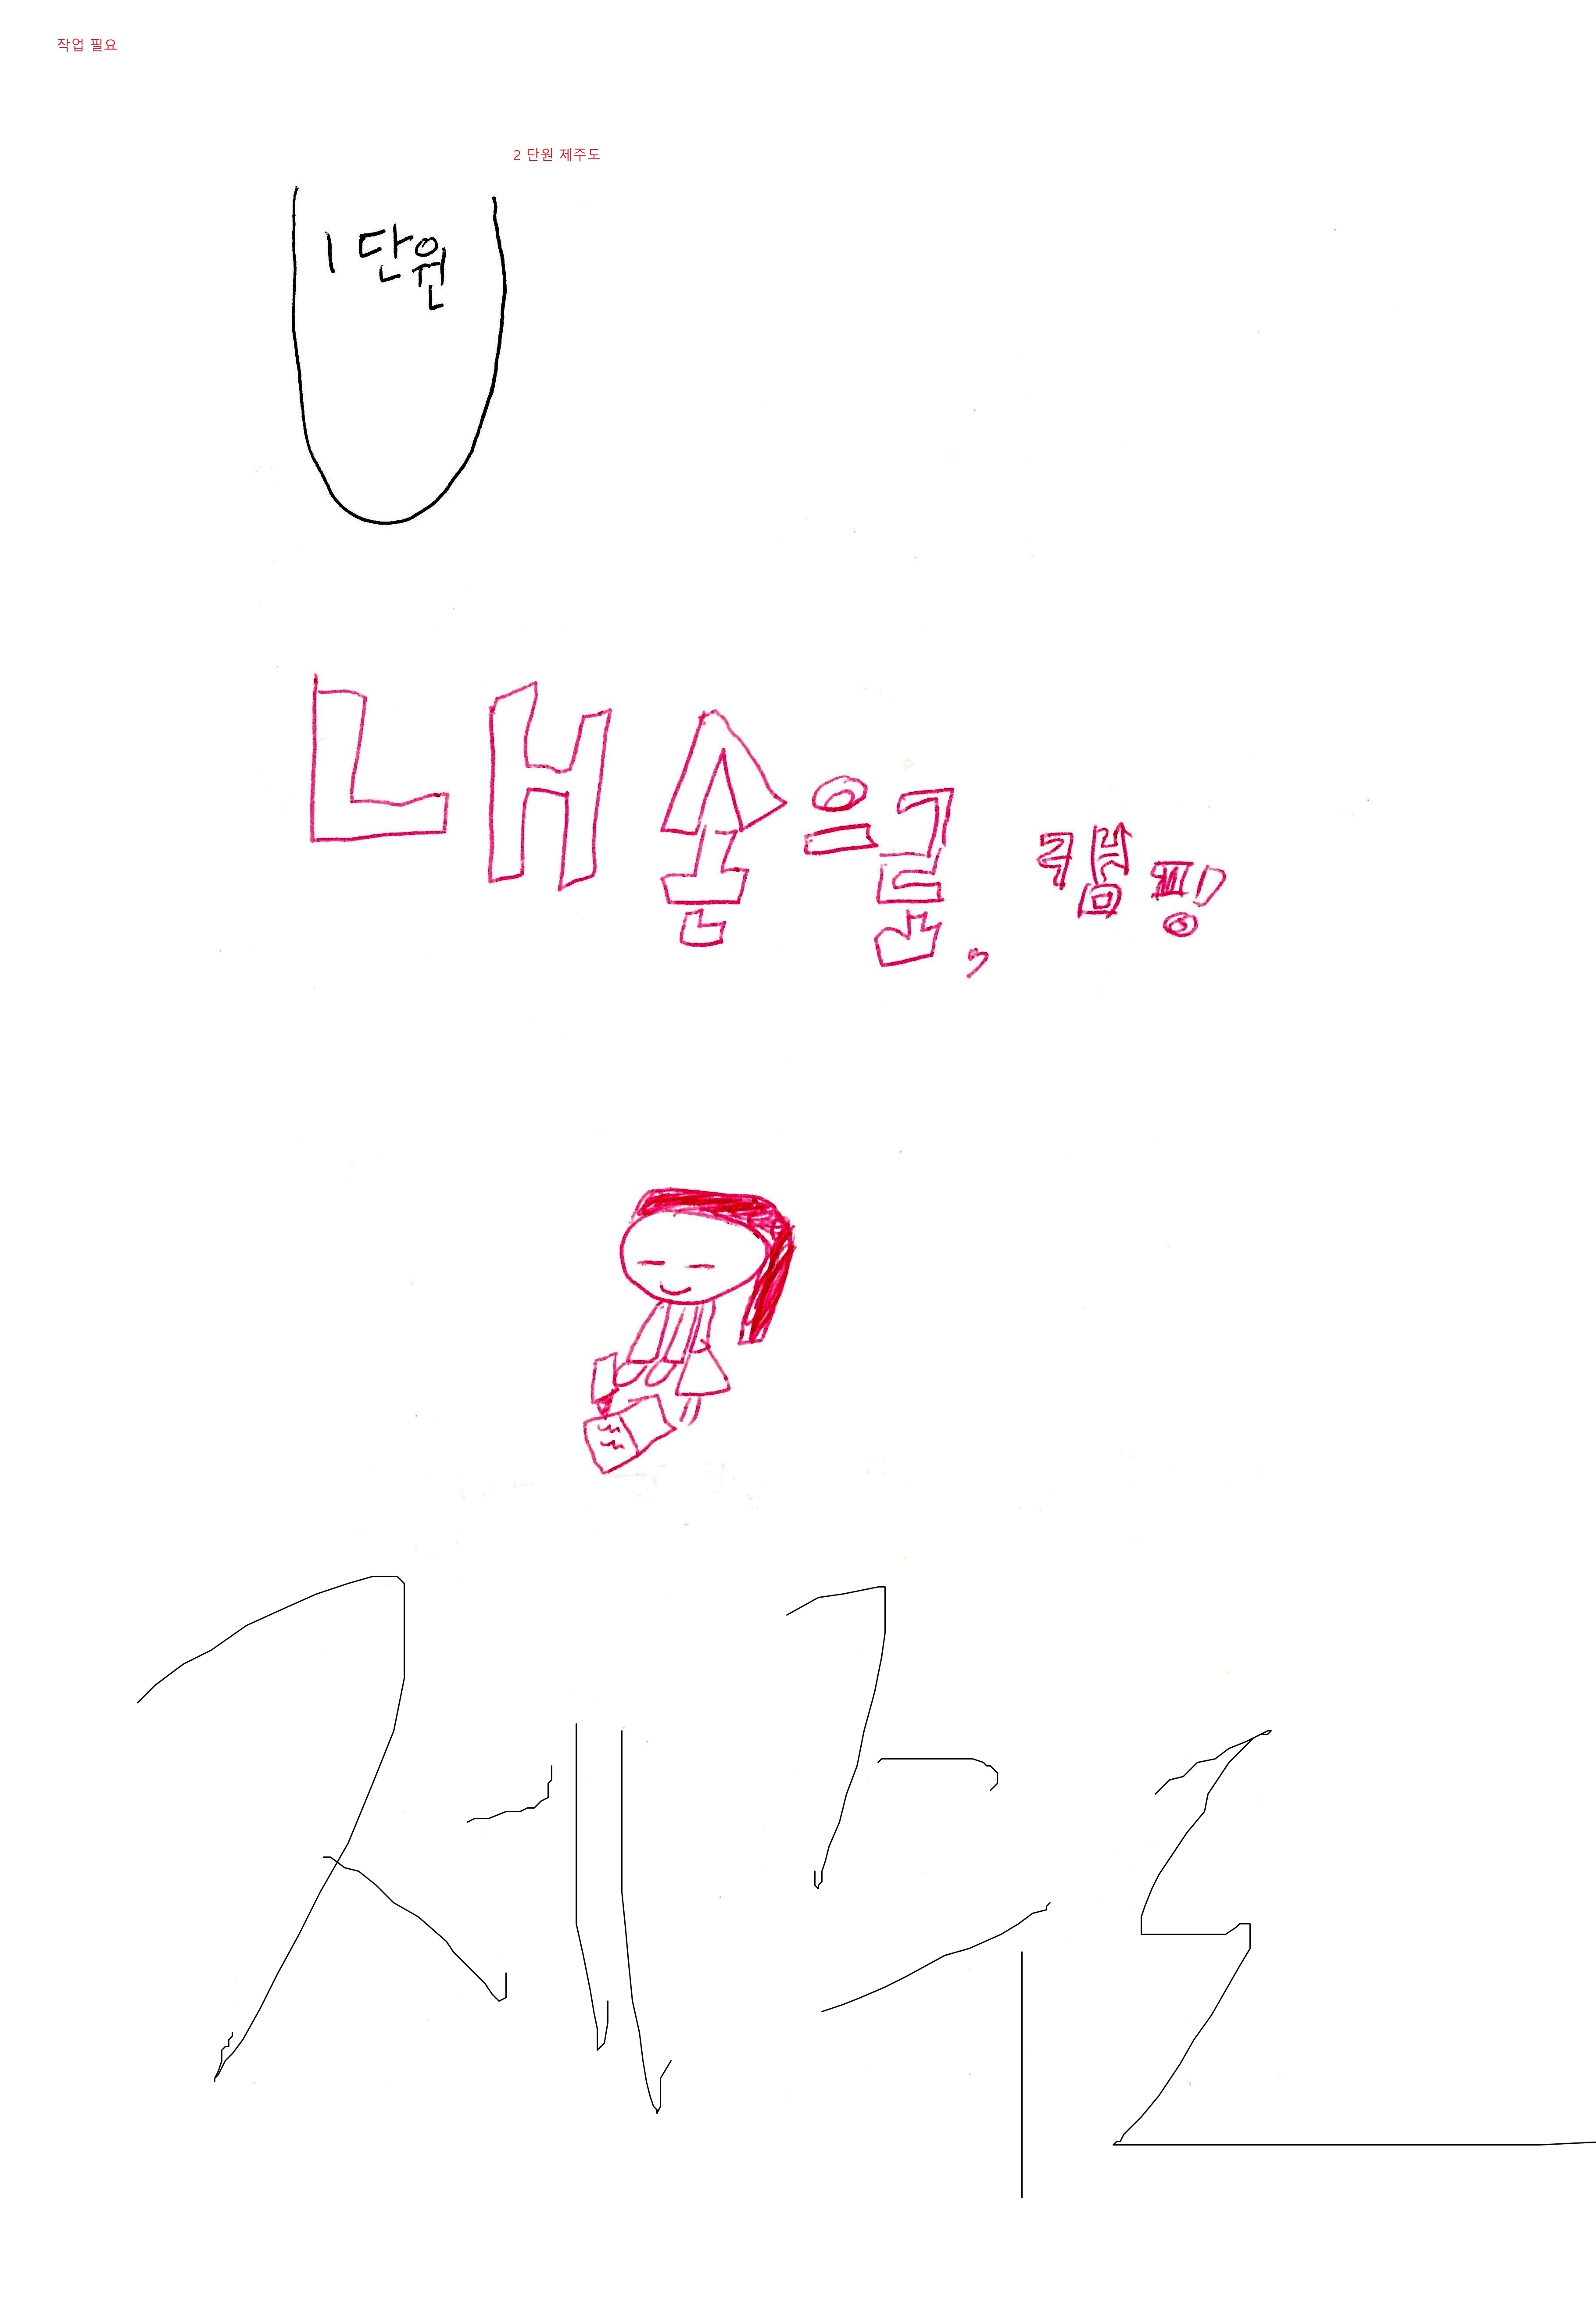 작업 필요
2 단원 제주도
1단원
내 손으로, 캠핑
제주